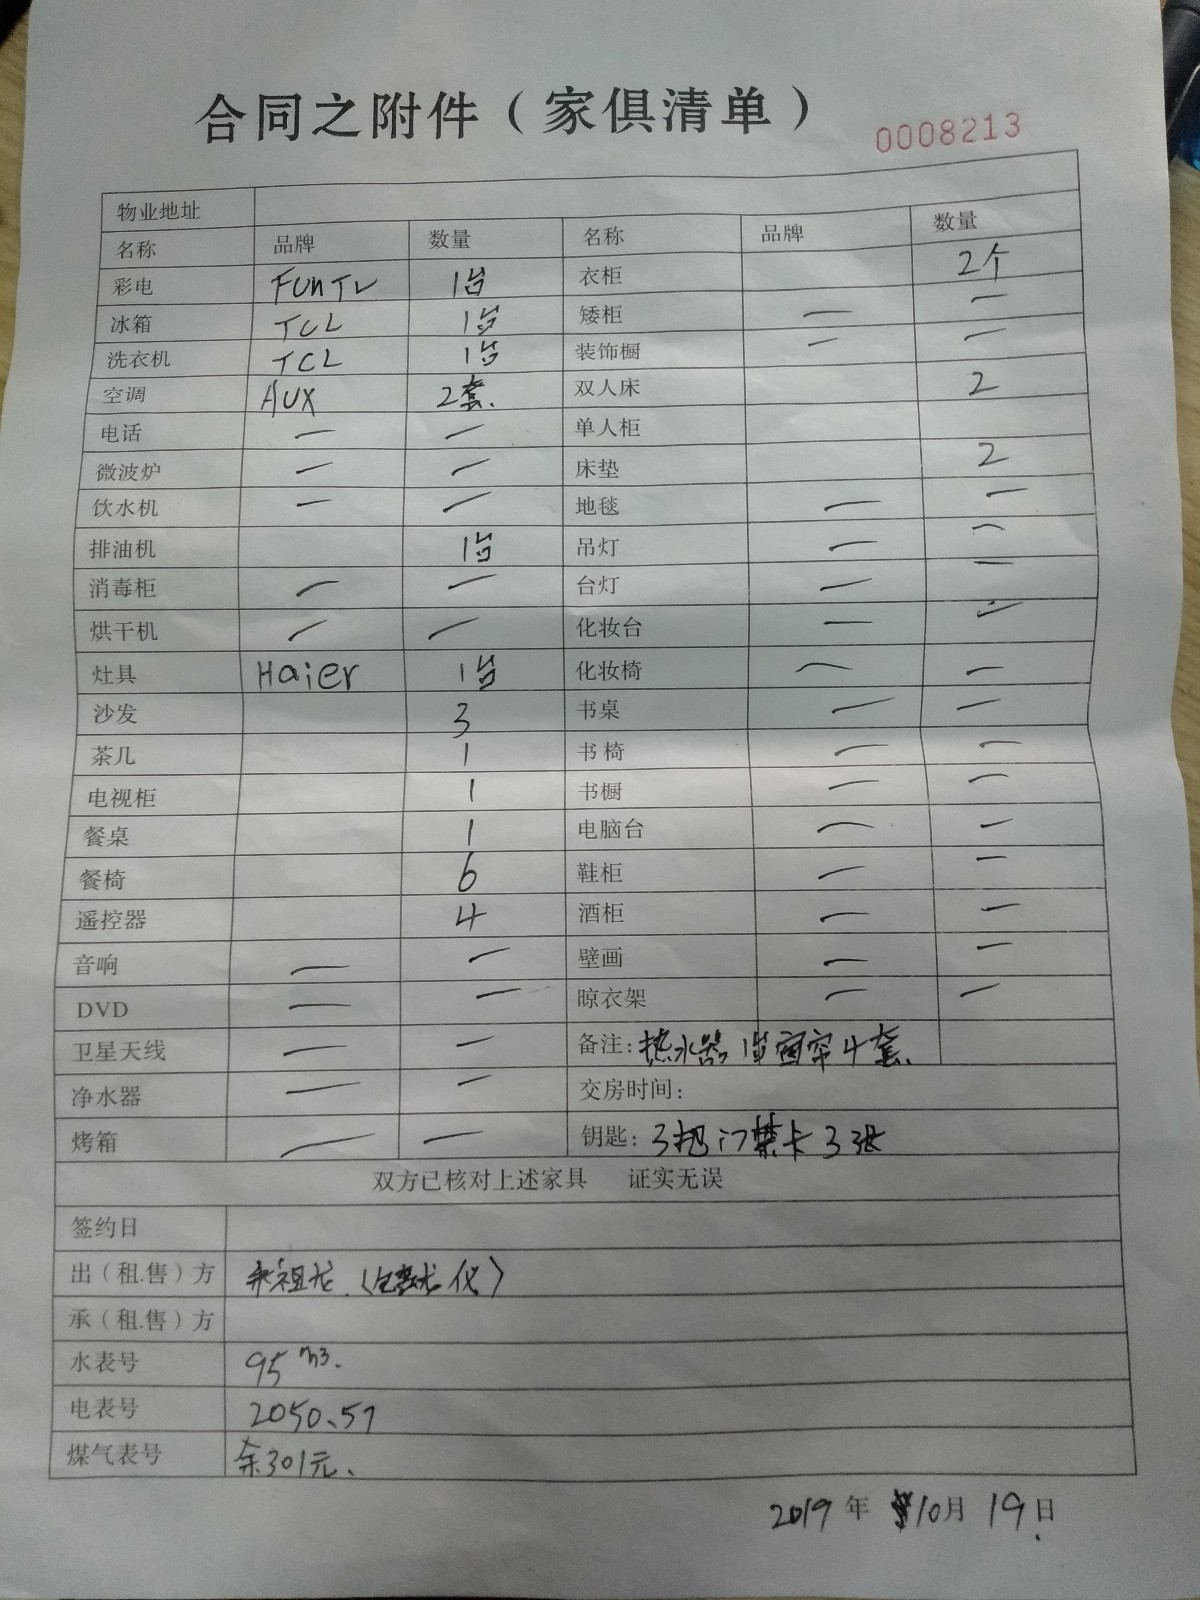 合同之附件（家俱清单）
0008213
物业地址
名称 品牌 数量 名称 品牌 数量
彩电 FUnTV 1台 衣柜 2个
冰箱 TCL 1台 矮柜 — —
洗衣机 TCL 1台 装饰橱 — —
空调 AUX 2套. 双人床 2
电话 — — 单人柜
微波炉 — — 床垫 2
饮水机 — — 地毯 — —
排油机 1台 吊灯 — —
消毒柜 — — 台灯 — —
烘干机 — — 化妆台 — —
灶具 Haier 1台 化妆椅 — —
沙发 3 书桌 — —
茶几 1 书椅 — —
电视柜 1 书橱 — —
餐桌 1 电脑台 — —
餐椅 6 鞋柜 — —
遥控器 4 酒柜 — —
音响 — — 壁画 — —
DVD — — 晾衣架 — —
卫星天线 — — 备注: 热水器 1台 窗帘4套.
净水器 — — 交房时间:
烤箱 — — 钥匙: 3把 门禁卡3张
双方已核对上述家具 证实无误
签约日
出（租.售）方 祖龙
承（租.售）方
水表号 95m3.
电表号 2050.57
煤气表号 余301元.
2019年 10月 19日